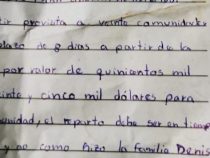 tir prevista a veinte comunidades
plazo de 8 días a partir de la
por valor de quinientos mil
einte y cinco mil dólares para
unidad, el reparto debe ser en tiemp
y no como hizo la familia Denis